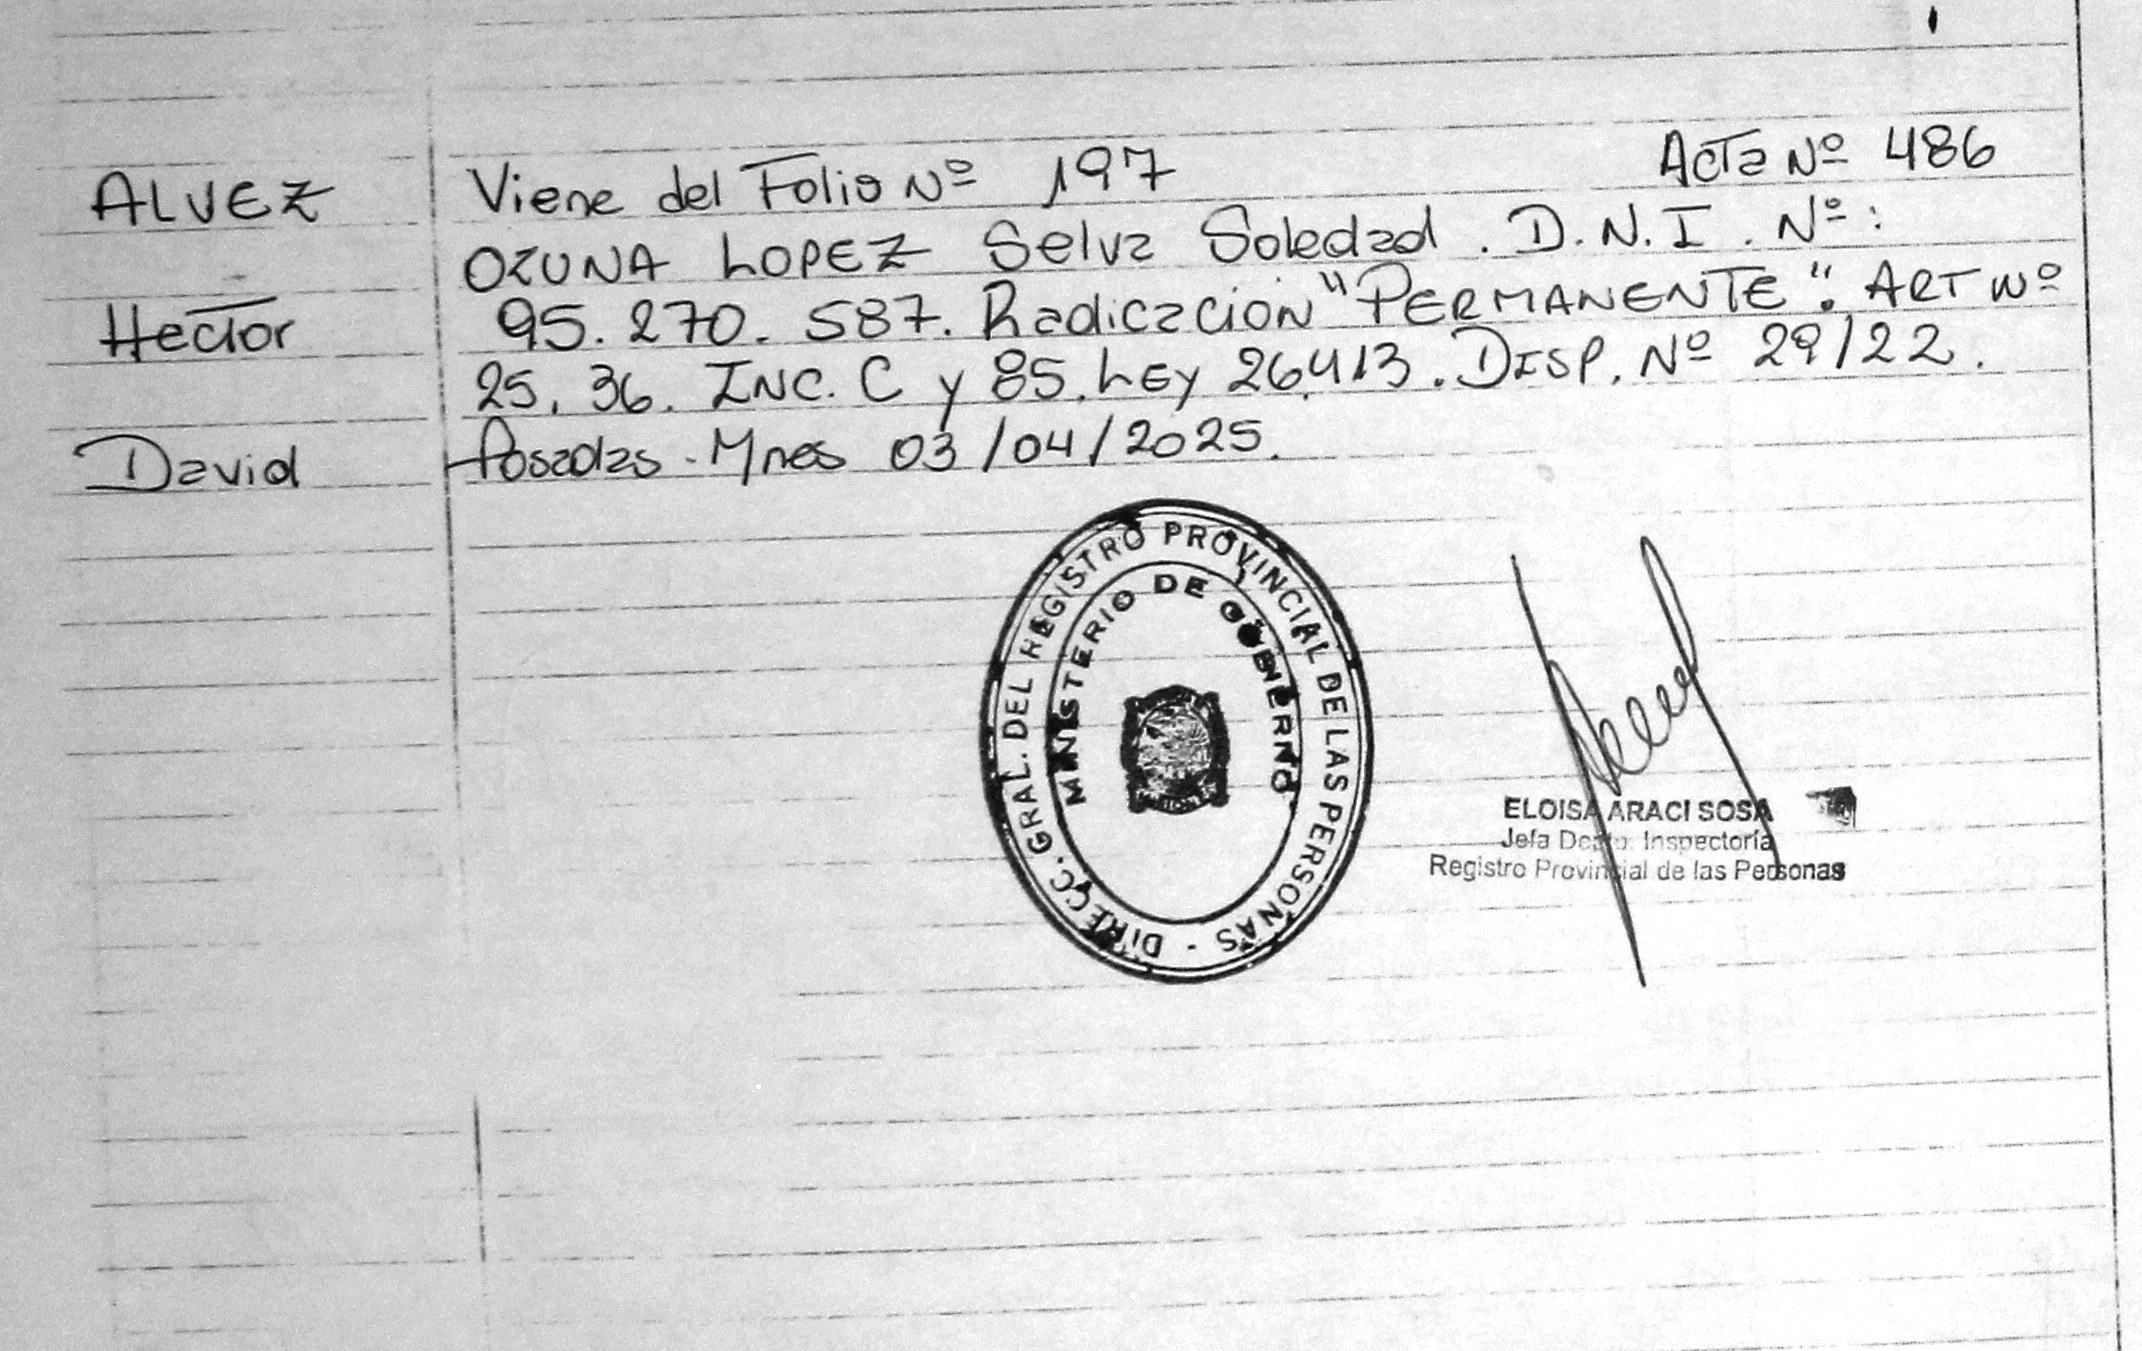 ALVEZ
Hector
David
Viene del Folio Nº 197 Acta Nº 486
OZUNA LOPEZ Selva Soledad. D.N.I. Nº:
95.270.587. Radicación "PERMANENTE". ART Nº
25, 36. INC. C y 85. LEY 26.413. DISP. Nº 29/22.
Posadas - Mnes 03/04/2025.
DIRECC. GRAL. DEL REGISTRO PROVINCIAL DE LAS PERSONAS -
MINISTERIO DE GOBIERNO
ELOISA ARACI SOSA
Jefa Depto. Inspectoría
Registro Provincial de las Personas